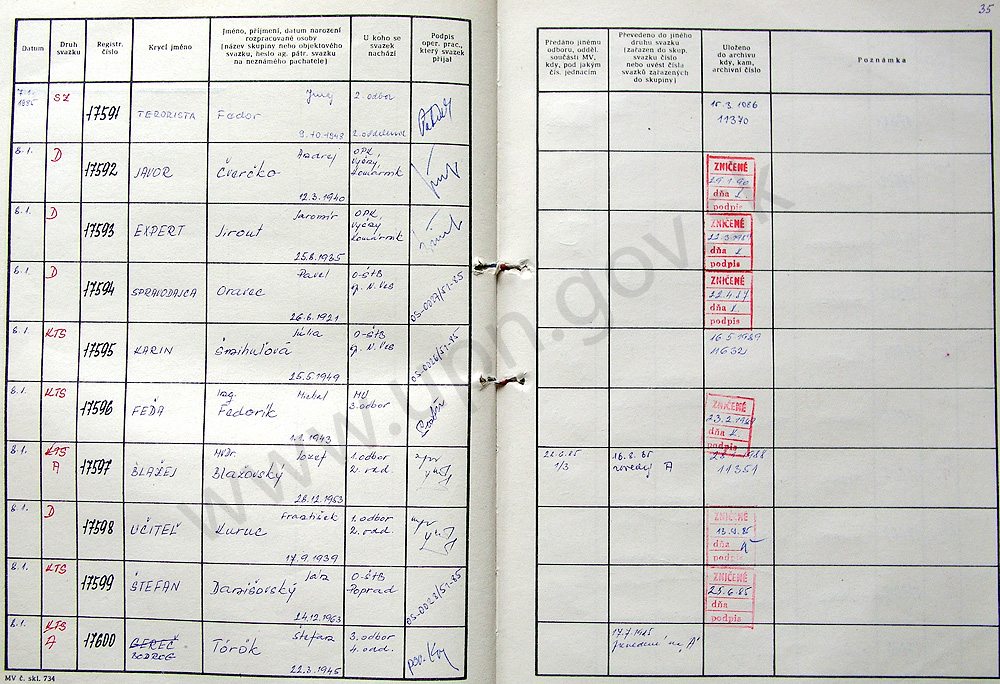 35
Datum
Druh
svazku
Registr.
číslo
Krycí jméno
Jméno, příjmení, datum narození
rozpracované osoby
(název skupiny nebo objektového
svazku, heslo ag. pátr. svazku
na neznámého pachatele)
U koho se
svazek
nachází
Podpis
oper. prac.,
který svazek
přijal
Předáno jinému
odboru, odděl.
součásti MV,
kdy, pod jakým
čís. jednacím
Převedeno do jiného
druhu svazku
(zařazen do skup.
svazku číslo
nebo uvést čísla
svazků zařazených
do skupiny)
Uloženo
do archivu
kdy, kam,
archivní číslo
Poznámka
7.1.
1985
SZ
17591
TERORISTA
Juraj
Fedor
9.10.1948
2. odbor
2. oddelenie
15.3.1986
11370
8.1.
D
17592
JAVOR
Andrej
Čverčko
12.3.1940
OPK,
Komárnik
ZNIČENÉ
dňa
podpis
8.1.
D
17593
EXPERT
Jaromír
Jirout
25.8.1935
OPK,
Komárnik
ZNIČENÉ
dňa
podpis
8.1.
D
17594
SPRAVODAJCA
Pavel
Oravec
26.6.1921
O-ŠTB
Sp. N. Ves
OS-0027/S1-85
ZNIČENÉ
22.4.87
dňa
podpis
8.1.
KTS
17595
KARIN
Júlia
Šmihuľová
25.5.1949
O-ŠTB
Sp. N. Ves
OS-0026/S1-85
16.5.1989
11632
8.1.
KTS
17596
FEĎA
Ing. Michal
Fedorik
1.1.1943
MV
3. odbor
ZNIČENÉ
dňa
podpis
8.1.
KTS
A
17597
BLAŽEJ
MVDr. Jozef
Blažovský
28.12.1953
1. odbor
2. odd.
22.8.85
1/3
A
11351
8.1.
D
17598
UČITEĽ
František
Kuruc
17.9.1939
1. odbor
2. odd.
ZNIČENÉ
dňa
podpis
8.1.
KTS
17599
ŠTEFAN
Ján
Danišovský
24.12.1963
O-ŠTB
Poprad
OS-0028/S1-85
ZNIČENÉ
25.6.85
dňa
podpis
8.1.
KTS
A
17600
BODROG
Štefan
Török
22.3.1945
3. odbor
4. odd.
17.7.1985
prevedené na "A"
MV č. skl. 734
www.upn.gov.sk